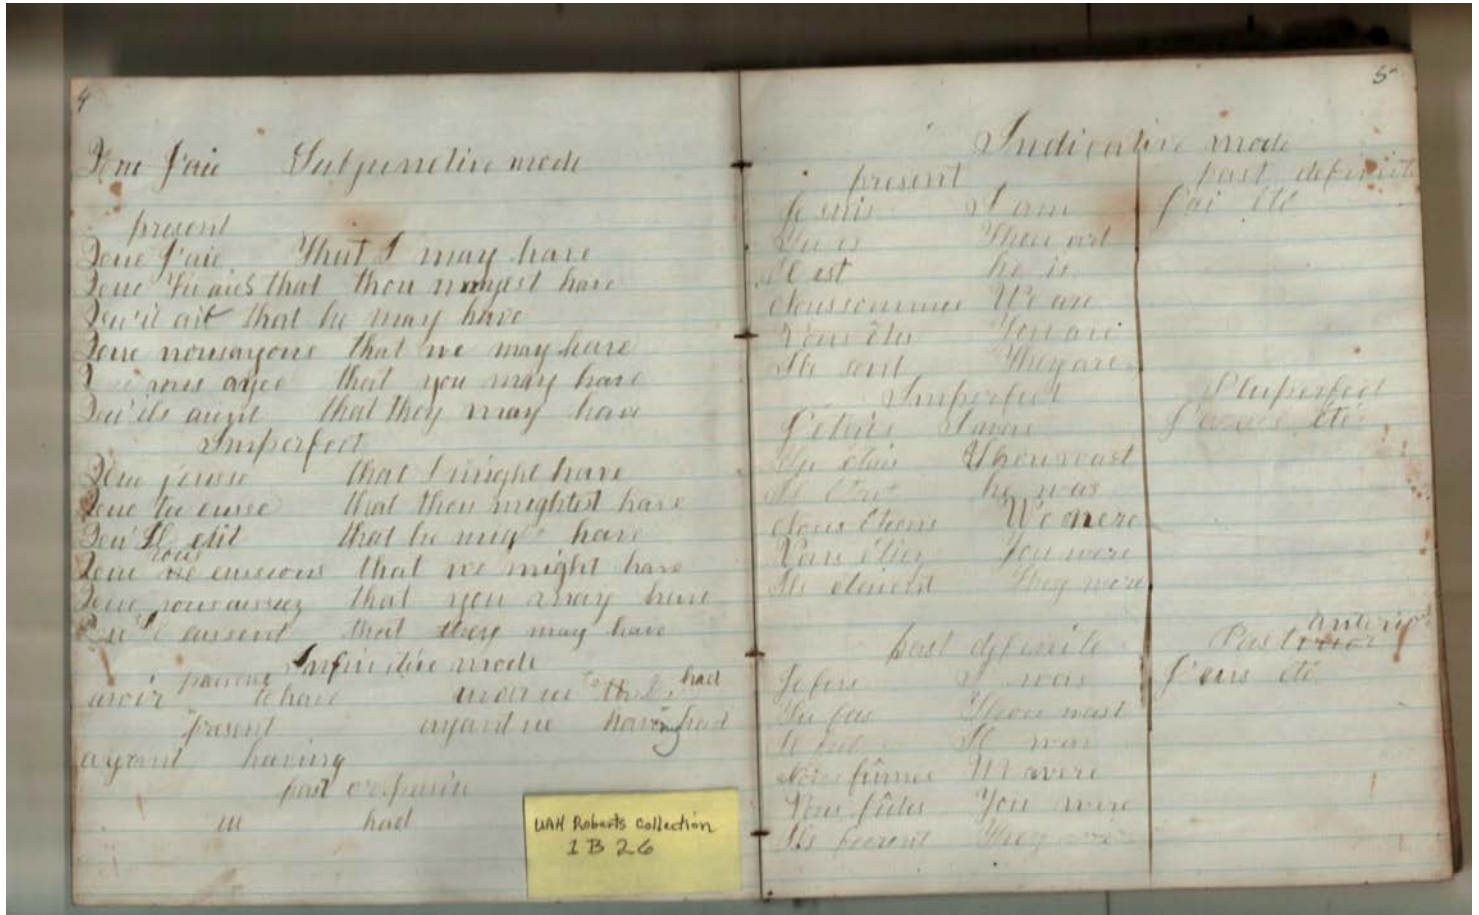 4
Que J'aie Subjunctive mode
present
Que J'aie That I may have
Que Tu aies that thou mayest have
Qu'il ait that he may have
Que nous ayons that we may have
vous ayez that you may have
Qu'ils aient that they may have
Imperfect
Que j'eusse that I might have
Que tu eusse that thou mightest have
Qu'Il eût that he might have
nous
Que we eussions that we might have
Que vous eussiez that you may have
Qu'il eussent that they may have
Infinitive mode
avoir to have had
present ayant eu having had
ayant having
past or passive
eu had
UAH Roberts Collection
1 B 26
5
Indicative mode
present past definite
Je suis I am J'ai été
Tu es Thou art
Il est he is
Nous sommes We are
Vous êtes You are
Ils sont They are
Imperfect Pluperfect
J'étais I was J'avais été
Tu étais Thou wast
Il était he was
Nous étions We were
Vous étiez You were
Ils etaient They were
past definite Past anterior
Je fus I was J'eus été
Tu fus Thou wast
Il fut It was
Nous fûmes We were
Vous fûtes You were
Ils furent They were